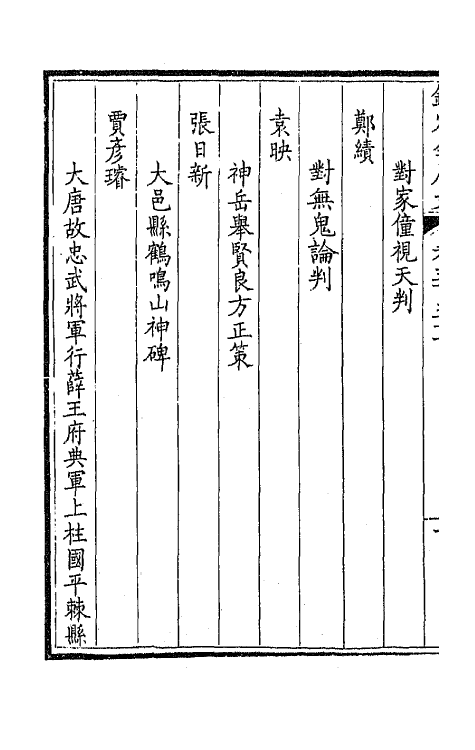 對家僮視天判
鄭績
對無鬼論判
袁映
神岳舉賢良方正策
張日新
大邑縣鶴鳴山神碑
賈彥璿
大唐故忠武將軍行薛王府典軍上柱國平棘縣